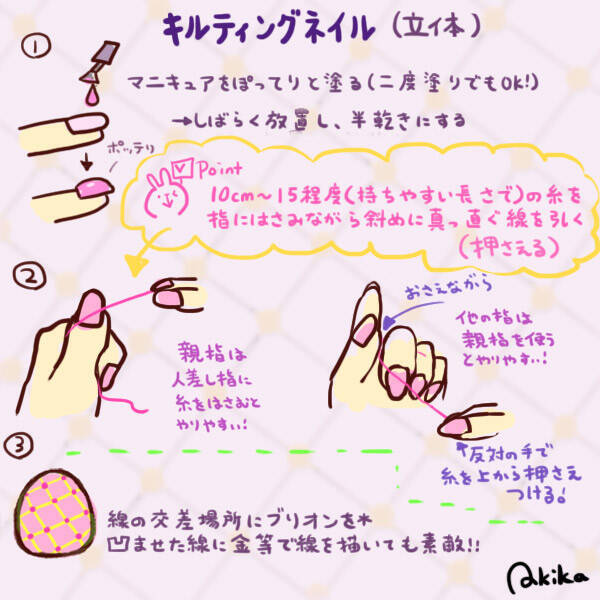 キルティングネイル(立体)
①
マニキュアをぽってりと塗る(二度塗りでもOK!)
→しばらく放置し、半乾きにする
ポッテリ
Point
10cm〜15程度(持ちやすい長さで)の糸を
指にはさみながら斜めに真っ直ぐ線を引く
(押さえる)
②
親指は
人差し指に
糸をはさむと
やりやすい!
おさえながら
他の指は
親指を使う
とやりやすい!
反対の手で
糸を上から押さえ
つける!
③
線の交差場所にブリオンを*
凹ませた線に金等で線を描いても素敵!!
Akika